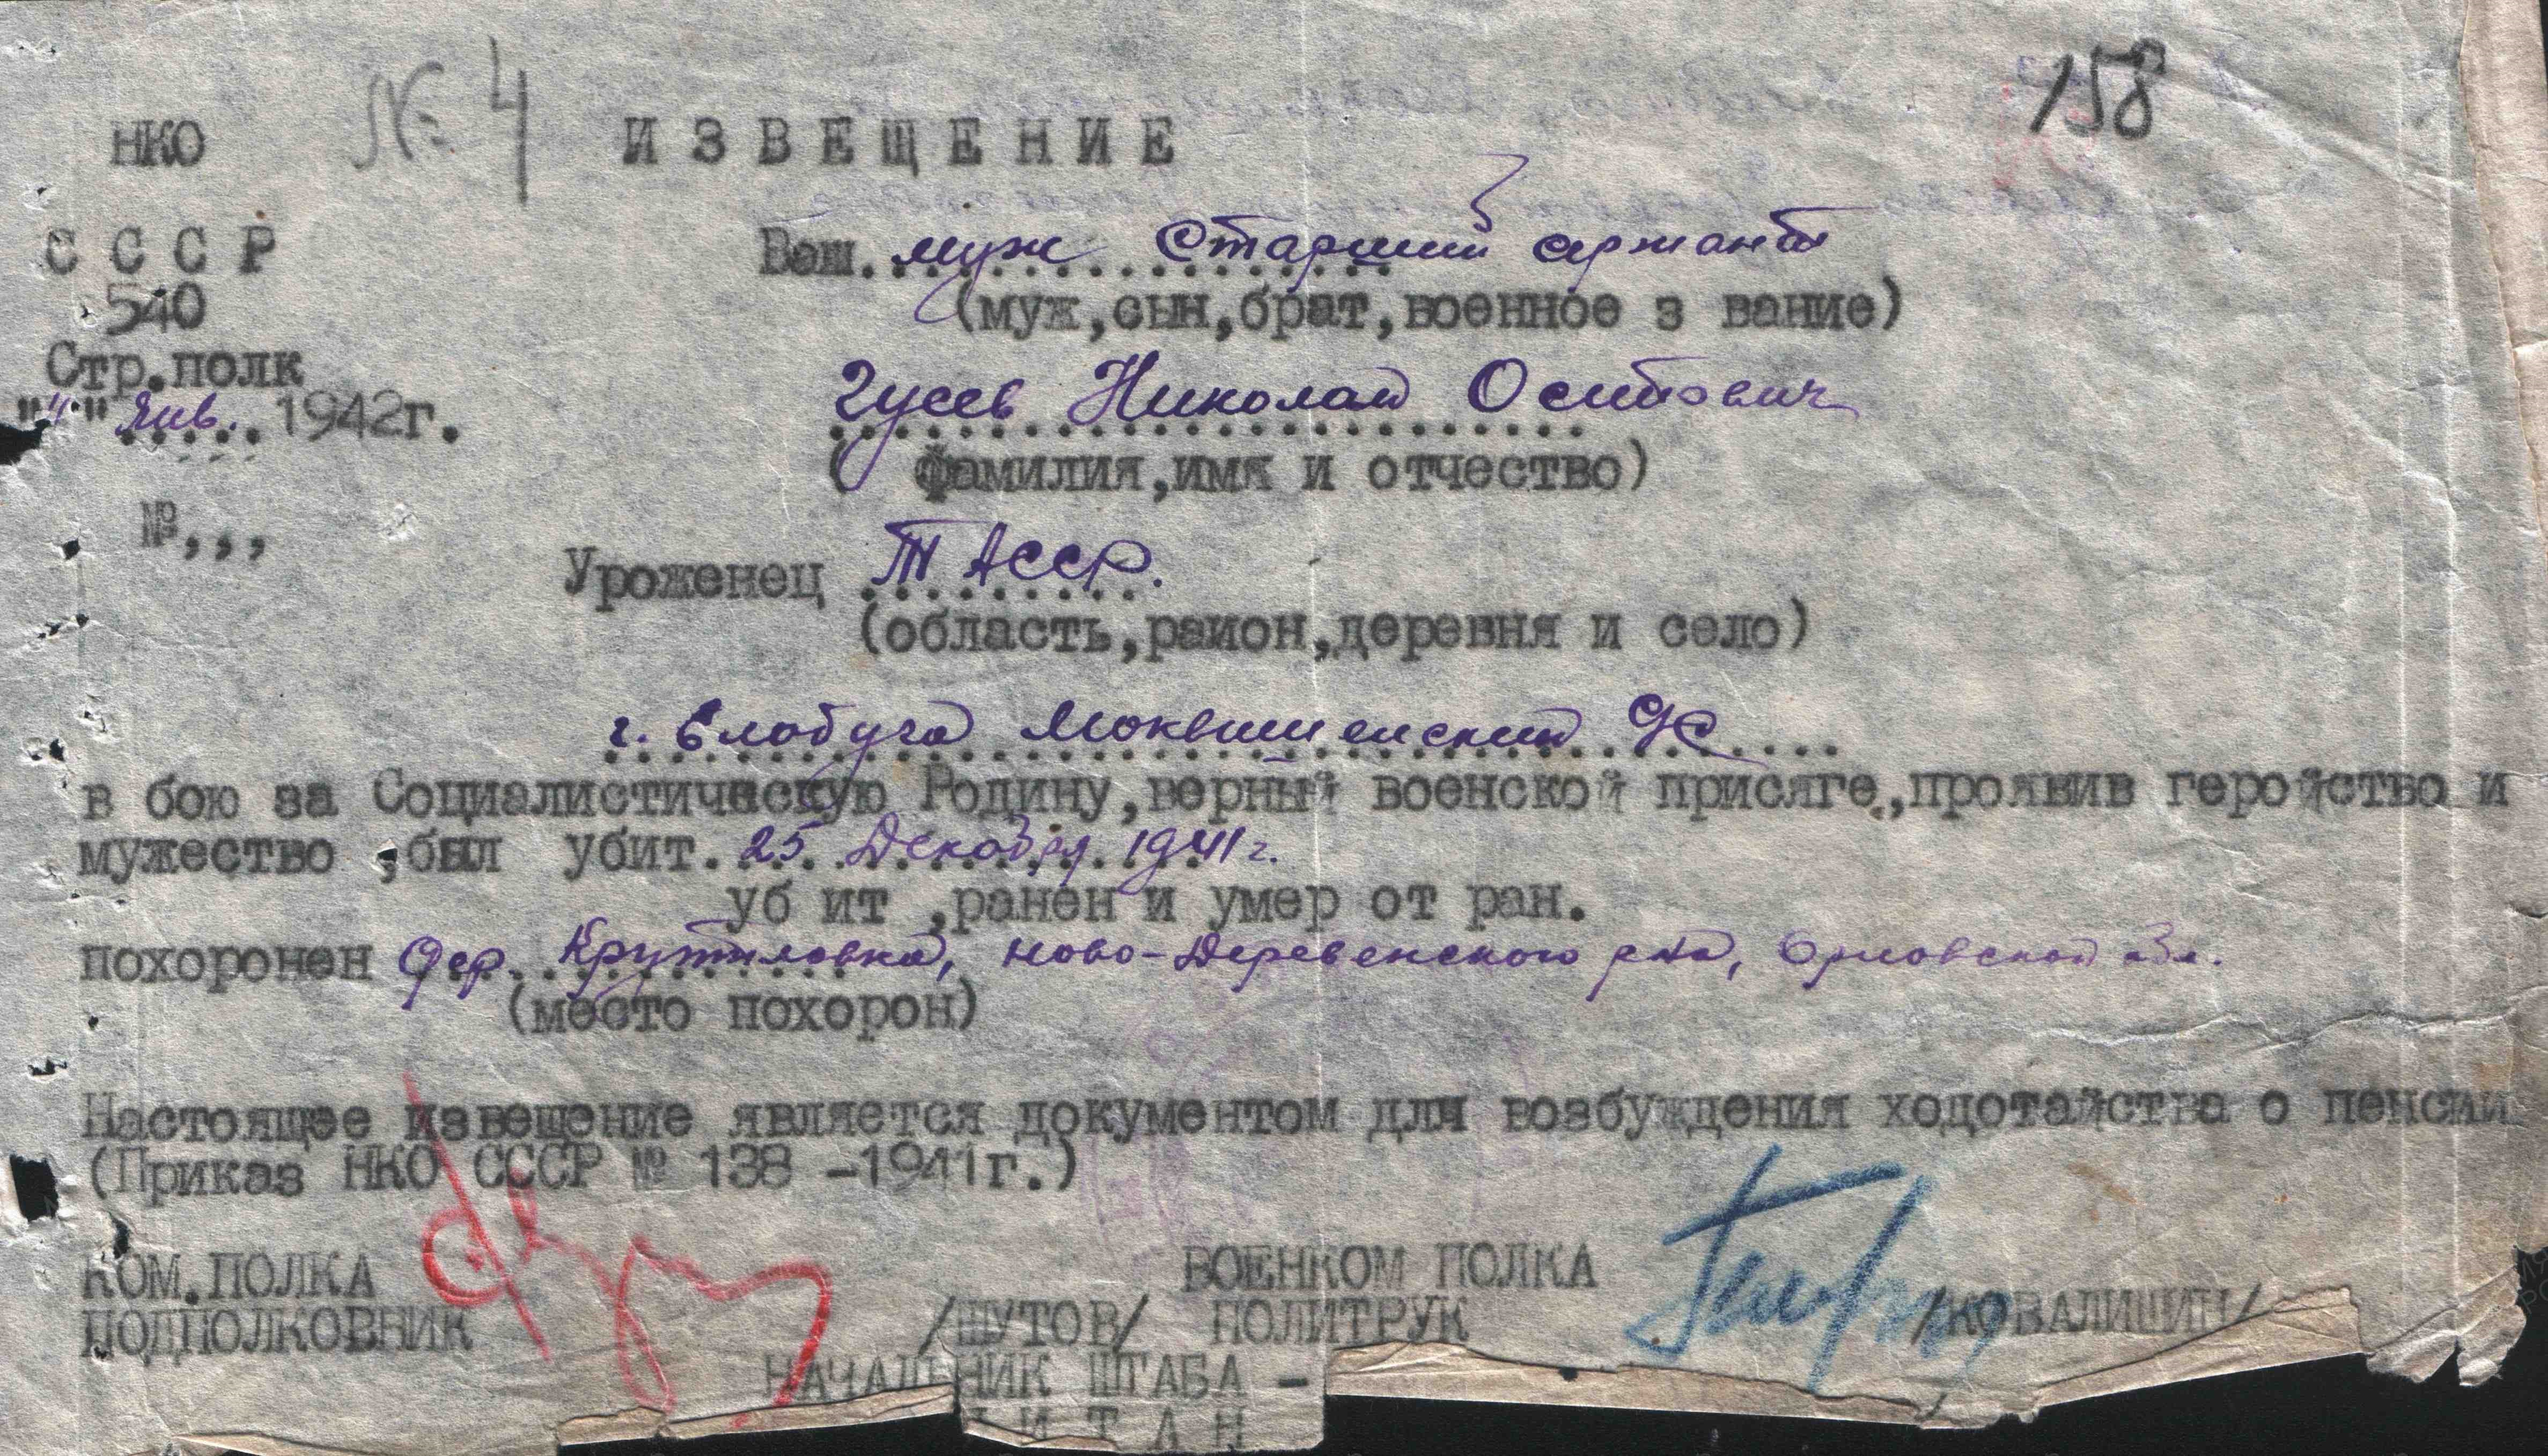 № 4
158
НКО
ИЗВЕЩЕНИЕ
СССР
Ваш. муж Старший сержант
540
(муж,сын,брат,военное з вание)
Стр.полк
Гусев Николай Осипович
"4" Янв. 1942г.
( Фамилия,имя и отчество)
№,,,
Уроженец ТАССР.
(область,раион,деревня и село)
г. Елабуга
в бою за Социалистическую Родину,верный военской присяге,,проявив геройство и
мужество ,был убит. 25 Декабря 1941 г.
уб ит ,ранен и умер от ран.
похоронен дер. Крутиловка, Ново-Деревенского р-на, Орловской обл.
(место похорон)
Настоящее извещение является документом для возбуждения ходотайства о пенсии
(Приказ НКО СССР № 138 -1941г.)
КОМ.ПОЛКА
ВОЕНКОМ ПОЛКА
ПОДПОЛКОВНИК
/ШУТОВ/
ПОЛИТРУК
/КОВАЛИШИН/
НАЧАЛЬНИК ШТАБА -